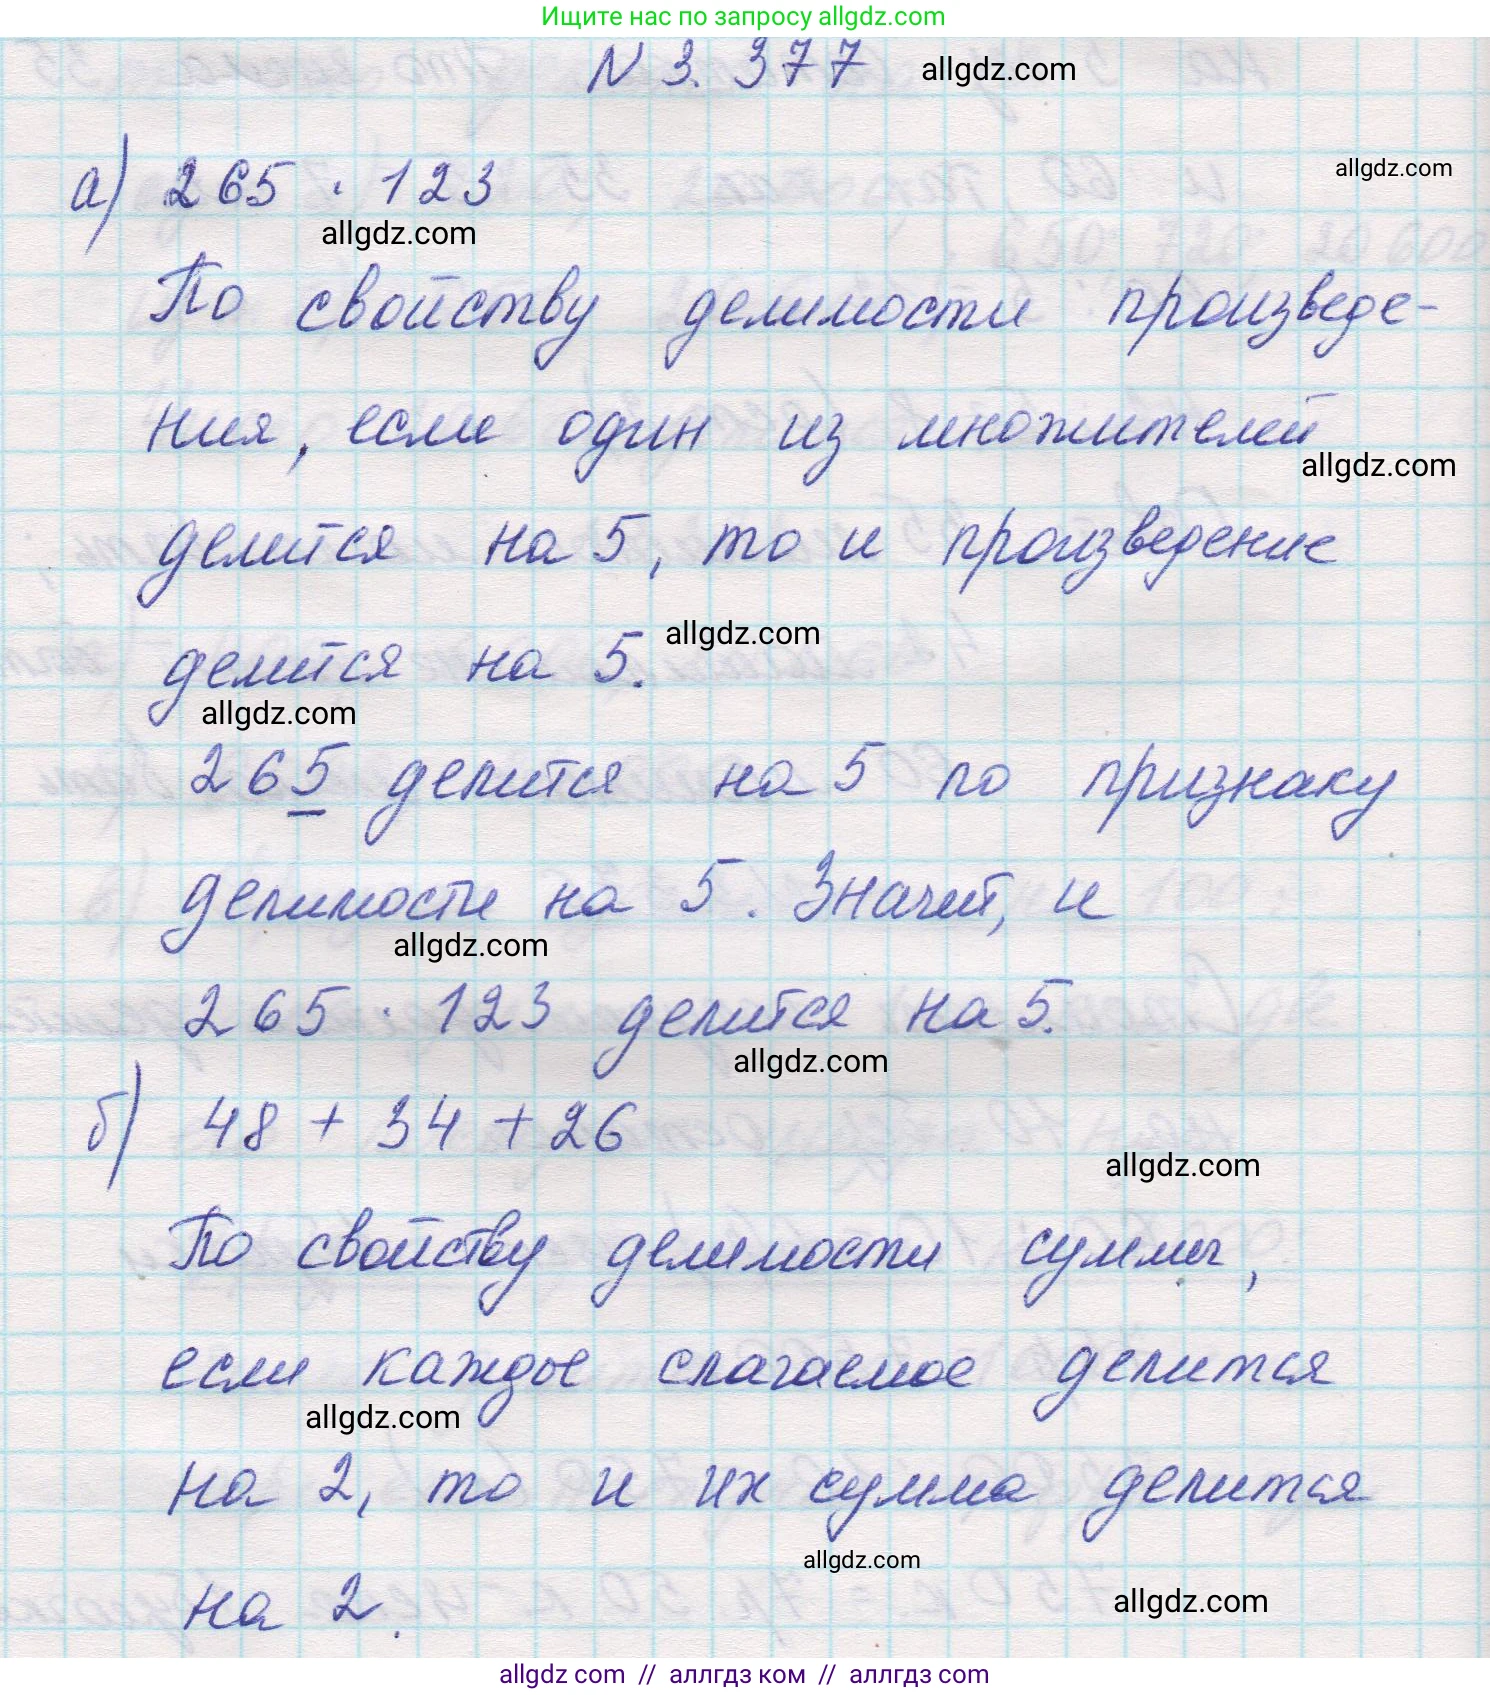 Ищите нас по запросу allgdz.com
N 3. 377 allgdz.com
а) 265 · 123 allgdz.com
allgdz.com
По свойству делимости произведе-
ния, если один из множителей
allgdz.com
делится на 5, то и произведение
делится на 5. allgdz.com
allgdz.com
265 делится на 5 по признаку
делимости на 5. Значит, и
allgdz.com
265 · 123 делится на 5.
allgdz.com
б) 48 + 34 + 26
allgdz.com
По свойству делимости суммы,
если каждое слагаемое делится
allgdz.com
на 2, то и их сумма делится
allgdz.com
на 2. allgdz.com
allgdz.com // аллгдз ком // аллгдз com